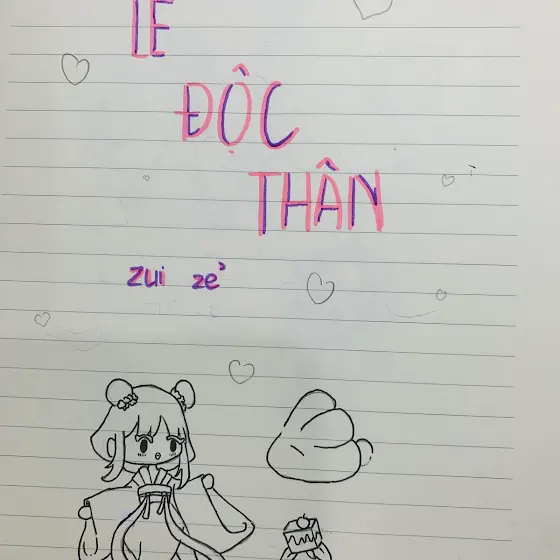 LE
ĐỘC
THÂN
zui zẻ